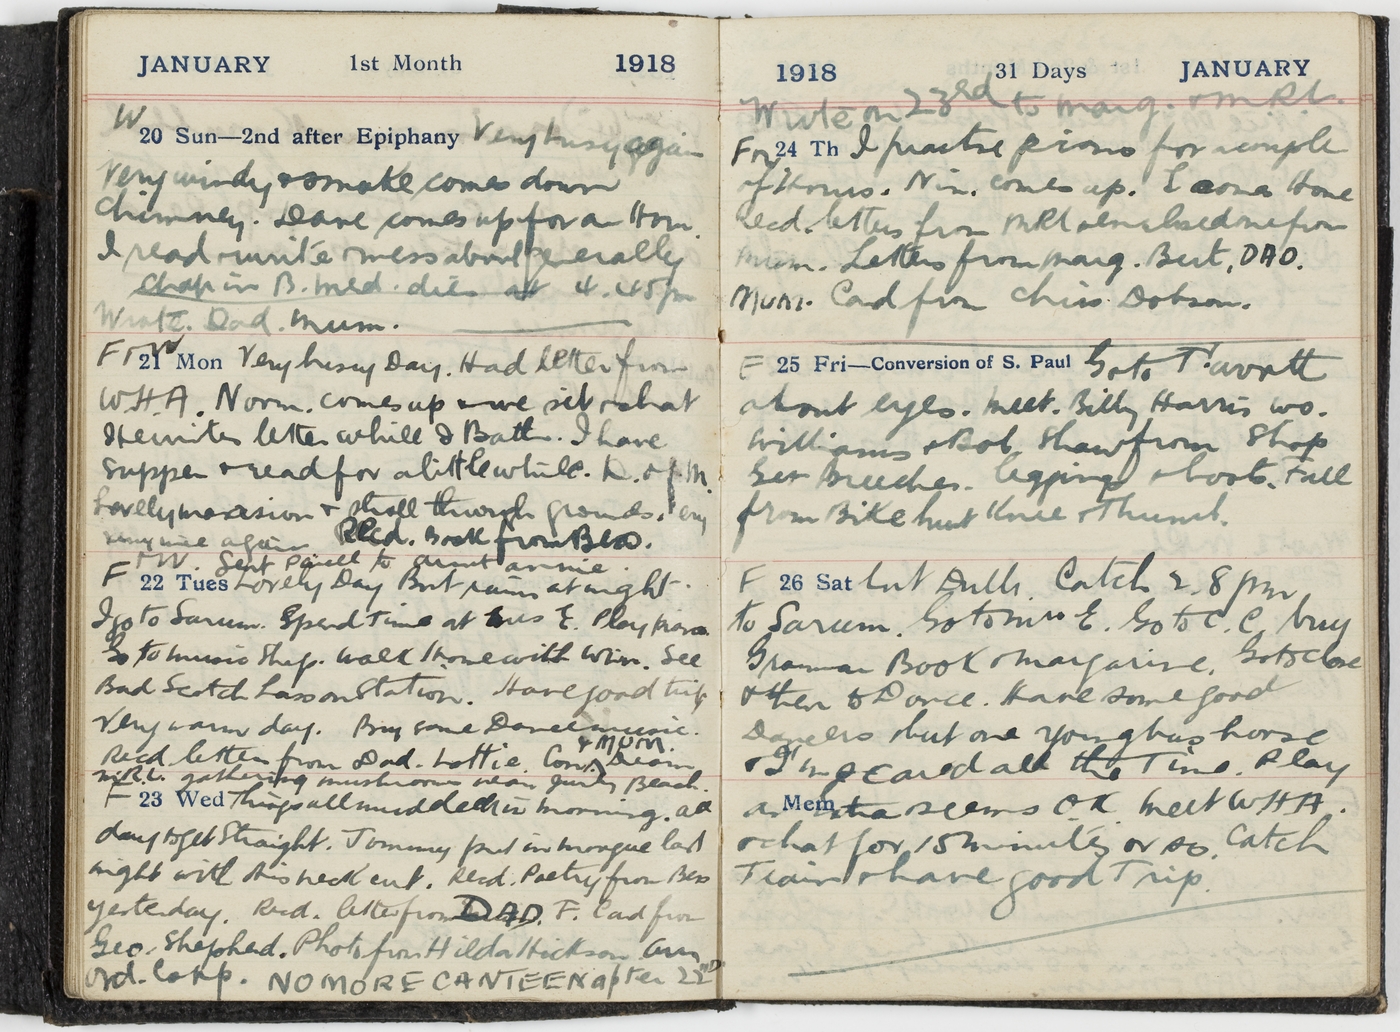 JANUARY 1st Month 1918
W
20 Sun—2nd after Epiphany Very busy again
Very windy & smoke comes down
Chimney. Dave comes up for an Hour.
I read & write & mess about generally
Chap in B. Med. dies at 4.45 pm
Wrote. Dad. Mum.
F & W
21 Mon Very busy Day. Had letter from
WHA. Norm. comes up & we sit & chat
He writes letter while I Bath. I have
Supper & read for a little while.
Lovely & stroll through grounds.
again Recd. Book from Bess.
F & W. Sent to Aunt Annie.
22 Tues Lovely Day But rain at night.
I go to Sarum. Spend Time at Mrs E. Play piano
Go to music Shop. Walk Home with Win. See
Bad Scotch Lass on Station. Have good trip
Very warm day. Buy some Dance music.
Recd. letters from Dad. Lottie. & MUM.
gathering mushrooms near Beach.
F
23 Wed Things all muddled in morning. all
day to get Straight. Tommy put in morgue last
night with his neck cut. Recd. Poetry from Bess
yesterday. Recd. letter from DAD. F. Card from
Geo. Shepherd. Photo from Hilda Hickson
Ord. Corp. NO MORE CANTEEN after 22nd
1918 31 Days JANUARY
Wrote on 23rd to Marg. & MRL.
24 Th I practise piano for couple
of Hours. Nin. comes up. I come Home
Recd. letters from MRL enclosed one from
Mum. Letters from Marg. Bert, DAD.
MUM. Card from Chris Dobson.
F
25 Fri—Conversion of S. Paul Go to
about eyes. Meet. Billy Harris
Williams & Bob Shaw from Shop
Get Breeches. leggings & boots. Fall
from Bike hurt Knee & Thumb.
F
26 Sat but Dull. Catch 2.8 pm
to Sarum. Go to Mrs E. Go to C.C. buy
Grammar Book & margarine. Go to Close
& then to Dance. Have some good
Dancers but one young has horse
& I'm scared all the Time. Play
Mem seems OK. Meet WHA.
& chat for 15 minutes or so. Catch
Train & have good Trip.